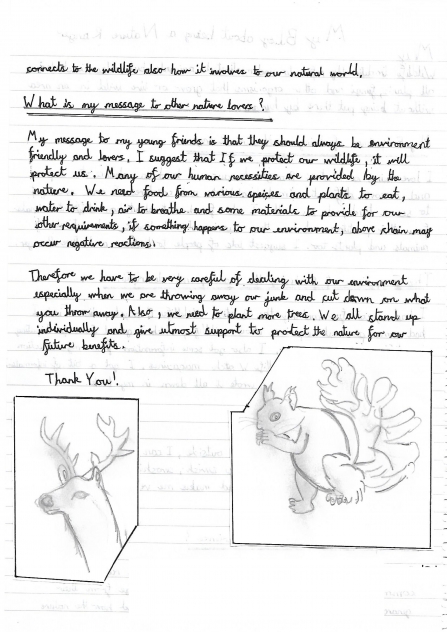 connects to the wildlife also how it involves to our natural world.
What is my message to other nature lovers?
My message to my young friends is that they should always be environment
friendly and lovers. I suggest that If we protect our wildlife, it will
protect us. Many of our human necessities are provided by the
nature. We need food from various speizes and plants to eat,
water to drink, air to breathe and some materials to provide for our
other requirements, if something happens to our environment, above chain may
occur negative reactions.
Therefore we have to be very careful of dealing with our environment
especially when we are throwing away our junk and cut down on what
you throw away. Also, we need to plant more trees. We all stand up
individually and give utmost support to protect the nature for our
future benefits.
Thank You!